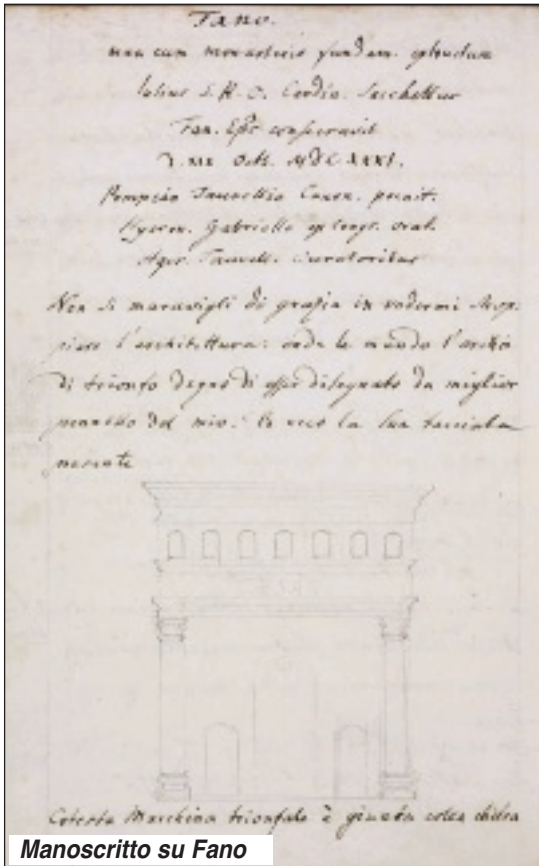 Fano.
una cum monasterio fundam. extructum
Iulius S.R.E. Cardin. Sacchettus
Fan. Epũs consecravit
D. XIX Oct. MDCXXXI.
Pompeio Canon. poenit.
Hyeron. Gabriello ex congr. orat.
curatoribus
Non si maravigli di grazia in vedermi stop-
piare l'architettura: onde le mando l'archo
di trionfo degno di esser disegnato da miglior
pennello del mio. le reco la sua facciata
nascente
Cotesta Macchina trionfale è giunta colla chiesa
Manoscritto su Fano